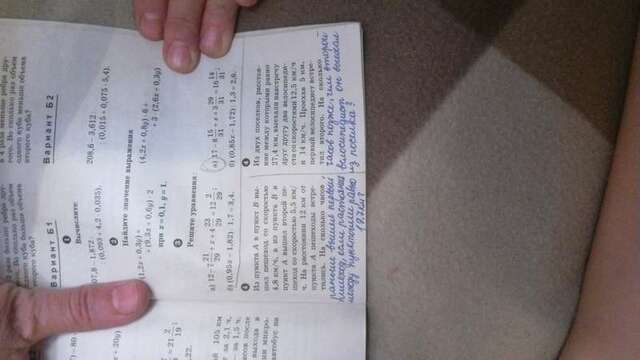 2 раза больше ребра дру-
гого. Во сколько раз объем
одного куба больше объема
второго куба?
в 4 раза меньше ребра дру-
гого. Во сколько раз объем
одного куба меньше объема
второго куба?
Вариант Б1
Вариант Б2
1
Вычислите:
07,8 – 1,872 :
: (0,093 + 4,2 · 0,035).
208,6 – 3,612 :
: (0,015 + 0,075 · 5,4).
2
Найдите значение выражения
(1,2x + 0,3y) +
+ (9,3x + 0,6y) · 2
(4,2x + 0,8y) · 6 +
+ 3 · (2,6x + 0,3y)
при x = 0,1, y = 1.
3
Решите уравнения:
а) 12 – 7 21/29 + x + 4 23/29 = 12 2/29;
б) (0,95x – 1,82) · 1,7 = 3,4.
а) 17 – 8 15/31 + x + 3 29/31 = 16 14/31;
б) (0,85x – 1,72) · 1,3 = 2,6.
4
Из пункта A в пункт B вы-
шел пешеход со скоростью
4,8 км/ч, а из пункта B в
пункт A вышел второй пе-
шеход со скоростью 5,5 км/
ч. На расстоянии 12 км от
пункта A пешеходы встре-
тились. На сколько часов
раньше вышел первый
пешеход, если расстояние
между пунктами равно
19,7 км?
4
Из двух поселков, расстоя-
ние между которыми равно
27,4 км, выехали навстречу
друг другу два велосипедис-
та со скоростями 12,5 км/ч
и 14 км/ч. Проехав 5 км,
первый велосипедист встре-
тил второго. На сколько
часов позже, чем второй
велосипедист он выехал
из поселка?